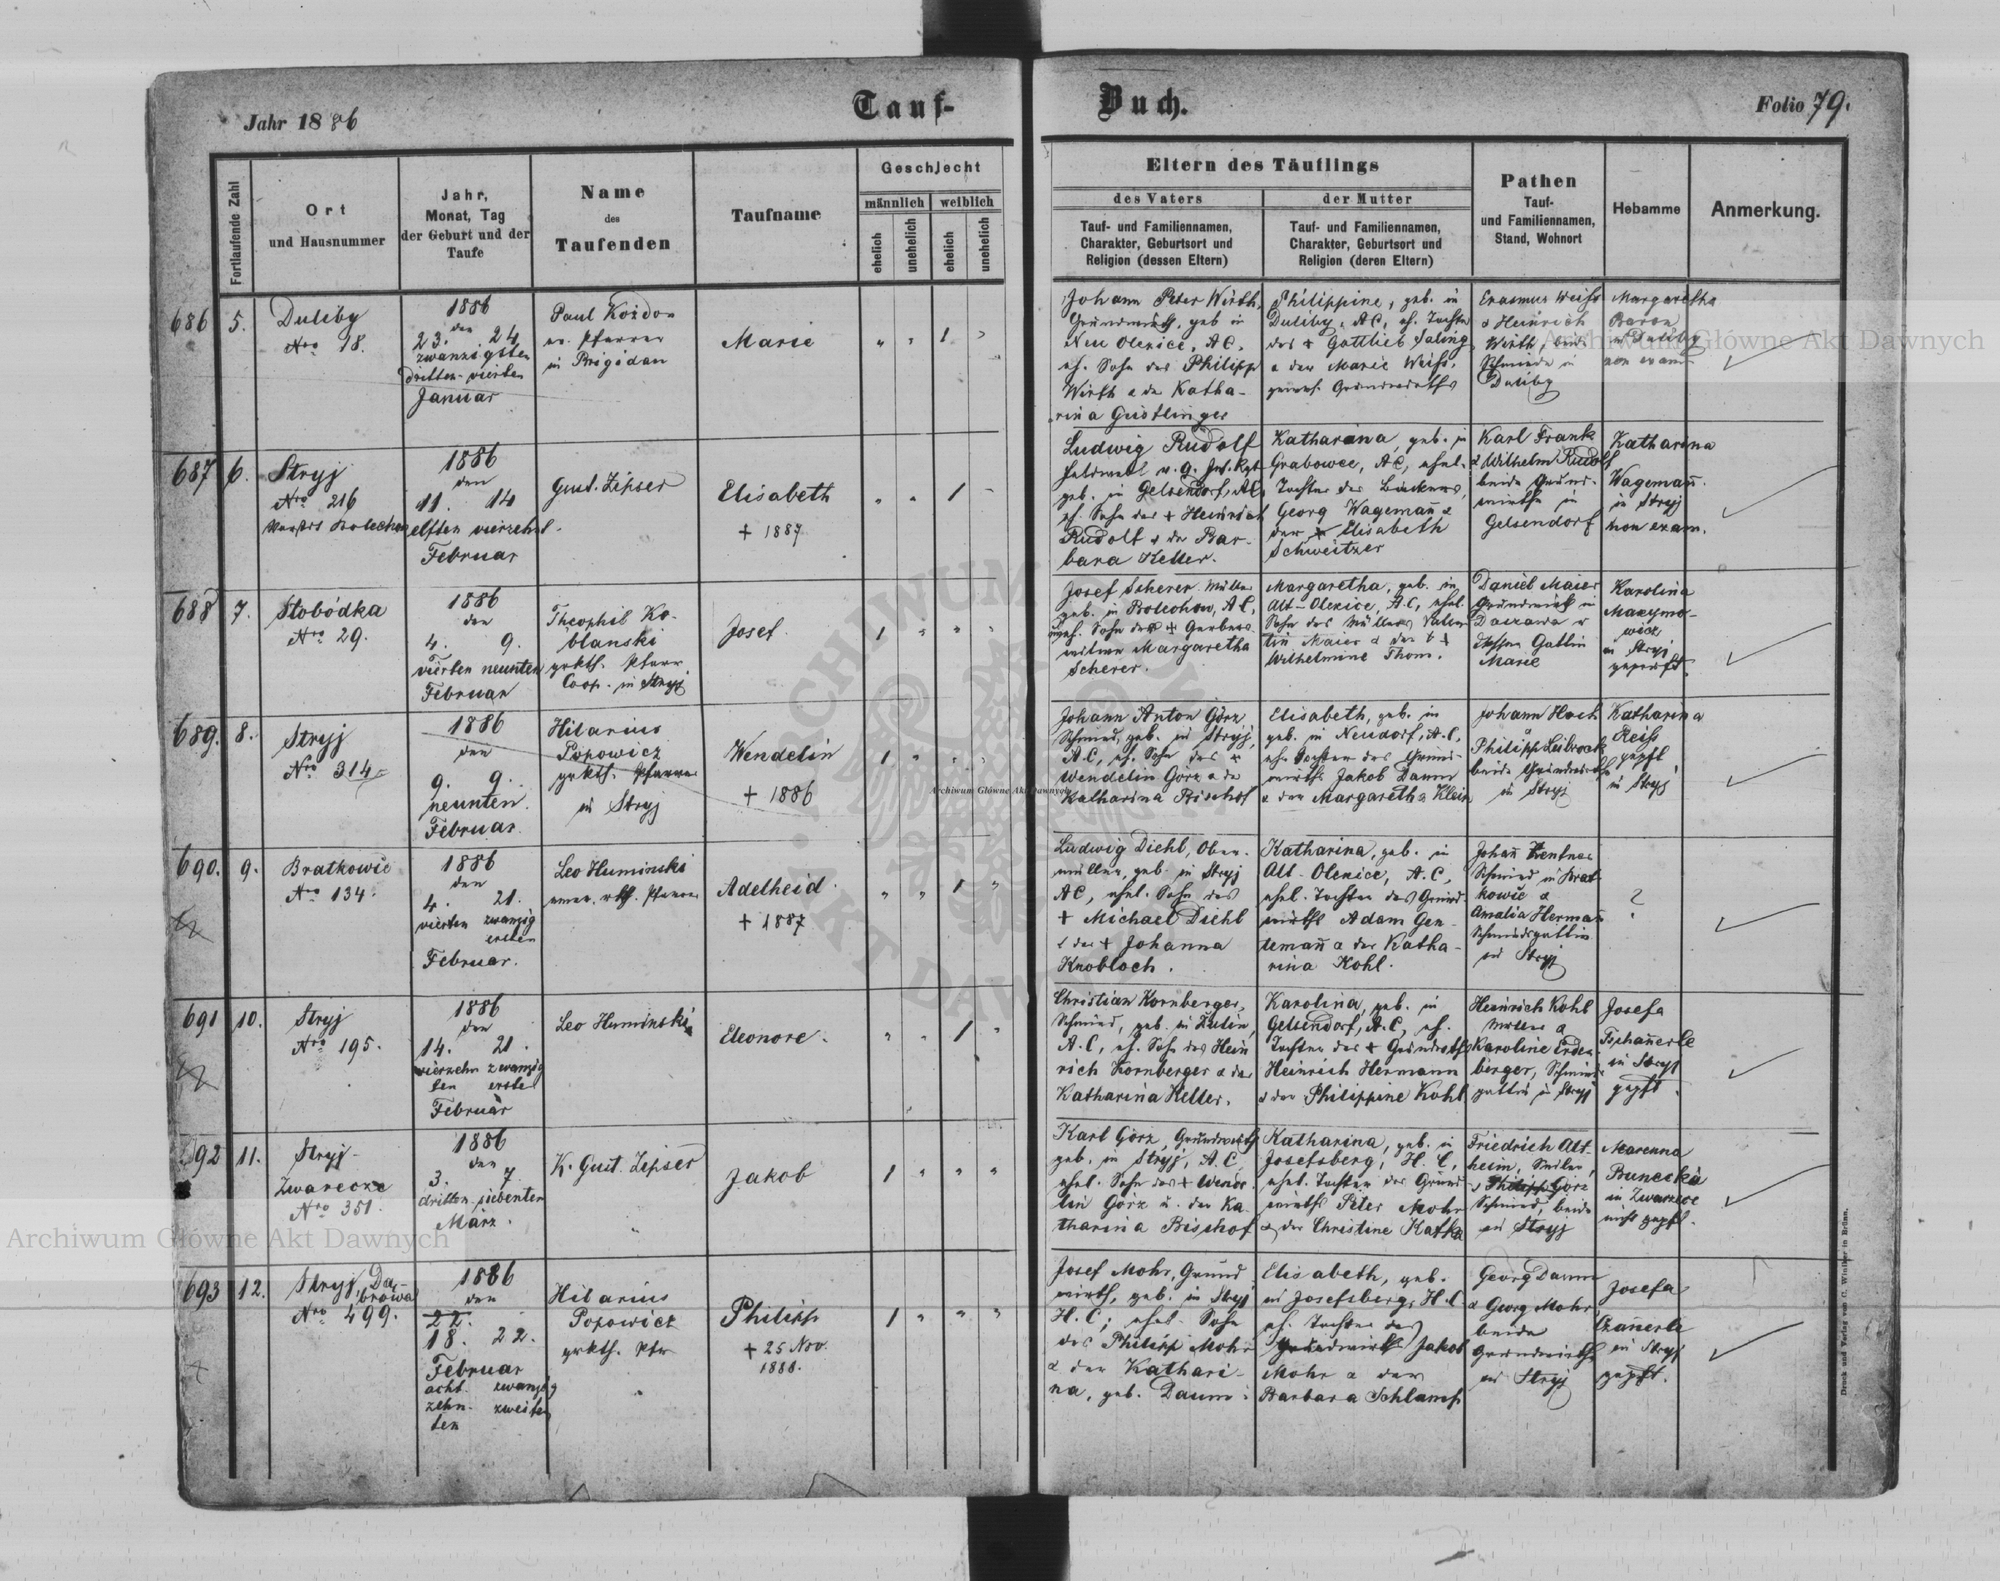 Jahr 1886
Tauf-
Buch.
Folio 79.
Fortlaufende Zahl
Ort
und Hausnummer
Jahr,
Monat, Tag
der Geburt und der
Taufe
Name
des
Taufenden
Taufname
Geschlecht
männlich
weiblich
ehelich
unehelich
ehelich
unehelich
Eltern des Täuflings
des Vaters
der Mutter
Tauf- und Familiennamen,
Charakter, Geburtsort und
Religion (dessen Eltern)
Tauf- und Familiennamen,
Charakter, Geburtsort und
Religion (deren Eltern)
Pathen
Tauf-
und Familiennamen,
Stand, Wohnort
Hebamme
Anmerkung.
686 5.
Duliby
Nro 18.
1886
den
23. 24.
zwanzigsten
dritten-vierten
Januar
Paul Kozdon
ev. Pfarrer
in Brigidau
Marie
" " 1 "
Johann Peter Wirth,
Grundwirth, geb in
Neu Olexice, AC,
eh. Sohn des Philipp
Wirth & der Katha-
rina Gustlinger
Philippine, geb. in
Duliby, AC, eh. Tochter
des + Gottlieb Saling
& der Marie Weiss,
Erasmus Weiss
& Heinrich
Wirth, beide
Schmiede in
Duliby
Margaretha
Baron
in Duliby
non exam.
687 6.
Stryj
Nro 216
1886
den
11. 14
elften vierzehnt.
Februar
Gust. Zipser
Elisabeth
+ 1887
" " 1 "
Ludwig Rudolf
geb. in Gelsendorf, AC,
eh. Sohn des + Heinrich
Rudolf & der Bar-
bara Keller.
Katharina, geb. in
Grabowce, AC, ehel.
Tochter des Bäckers,
Georg Wagemann &
der + Elisabeth
Schweitzer
Karl Frank
& Wilhelm Rudolf
beide Grund-
wirthe in
Gelsendorf
Katharina
Wagemann
in Stryj
non exam.
688 7.
Slobódka
Nro 29.
1886
den
4. 9.
vierten neunten
Februar
Theophil Ko-
blanski
grkth. Pfarr
Coop. in Stryj
Josef.
1 " " "
Josef Scherer Müller
geb. in Bolechow, AC,
uneh. Sohn der + Gerbers-
witwe Margaretha
Scherer.
Margaretha, geb. in
Alt-Olexice, A.C, ehel.
des Müllers Valen-
tin Maier & der +
Wilhelmine Thom.
Daniel Maier
Grundwirth in
Daszawa &
dessen Gattin
Marie
Karolina
Maxymo-
wicz
in Stryj
geprüft.
689. 8.
Stryj
Nro 314
1886
den
9. 9.
neunten
Februar
Hilarius
Popowicz
grkth. Pfarrer
in Stryj
Wendelin
+ 1886
1 " " "
Johann Anton Görz
Schmied, geb. in Stryj,
A.C, eh. Sohn des +
Wendelin Görz & der
Katharina Bischof
Elisabeth, geb. in
geb. in Neudorf, A.C,
ehe Tochter des Grund-
wirths Jakob Daum
& der Margaretha Klein
Johann Hoch
&
Philipp Leibrock
beide Grundwirthe
in Stryj
Katharina
Reiss
gepft
in Stryj
690. 9.
Bratkowic
Nro 134.
1886
den
4. 21.
vierten zwanzig
ersten
Februar.
Leo Huminski
Adelheid.
+ 1887
" " 1 "
Ludwig Diehl, Ober-
müller, geb. in Stryj
AC, ehel. Sohn des
+ Michael Diehl
& der + Johanna
Knobloch.
Katharina, geb. in
Alt-Olexice, A.C,
ehel. Tochter des Grund-
wirths Adam Gen-
temann & der Katha-
rina Kohl.
Schmied in Brat-
kowic &
Amalia Hermann
Schmiedsgattin
in Stryj
?
691 10.
Stryj
Nro 195.
1886
den
14. 21.
vierzehn zwanzig
ten erste
Februar
Leo Huminski
Eleonore.
" " 1 "
Christian Kornberger,
Schmied, geb. in Zulin,
A.C, eh. Sohn des Hein
rich Kornberger & der
Katharina Keller.
Karolina, geb. in
Gelsendorf, A.C, eh.
Tochter des + Grundwirths
Heinrich Hermann
& der Philippine Kohl
Heinrich Kohl
&
Karoline Erden-
berger, Schmieds
gattin in Stryj
Josefa
in Stryj
gepft.
692 11.
Stryj-
Nro 351.
1886
den
3. 7.
dritten siebenten
März.
K. Gust. Zipser
Jakob
1 " " "
Karl Görz, Grundwirth
geb. in Stryj, A.C,
ehel. Sohn des + Wende-
lin Görz u. der Ka-
tharina Bischof
Katharina, geb. in
Josefsberg, H.C,
ehel. Tochter des Grund-
wirths Peter Mohr
& der Christine Kafka
Friedrich Alt-
heim,
& Philipp Görz
Schmied, beide
in Stryj
Marenna
Bunecka
in Zwarzec
nicht gepft.
693 12.
Stryj, Da-
browa
Nro 499.
1886
den
22.
18. 22.
Februar
acht zwanzig
zehn zweiten
ten
Hilarius
Popowicz
grkth. Pfr
Philipp
+ 25 Nov.
1888.
1 " " "
Josef Mohr, Grund
wirth, geb. in Stryj
H.C; ehel. Sohn
des Philipp Mohr
& der Kathari-
na, geb. Daum.
Elisabeth, geb.
in Josefsberg, H.C
eh. Tochter des
Grundwirths Jakob
Mohr & der
Barbara Schlamp
Georg Daum
& Georg Mohr
beide
Grundwirthe
in Stryj
Josefa
in Stryj
gepft.
Druck und Verlag von C. Winiker in Brünn.
Archiwum Główne Akt Dawnych
Archiwum Główne Akt Dawnych
Archiwum Główne Akt Dawnych